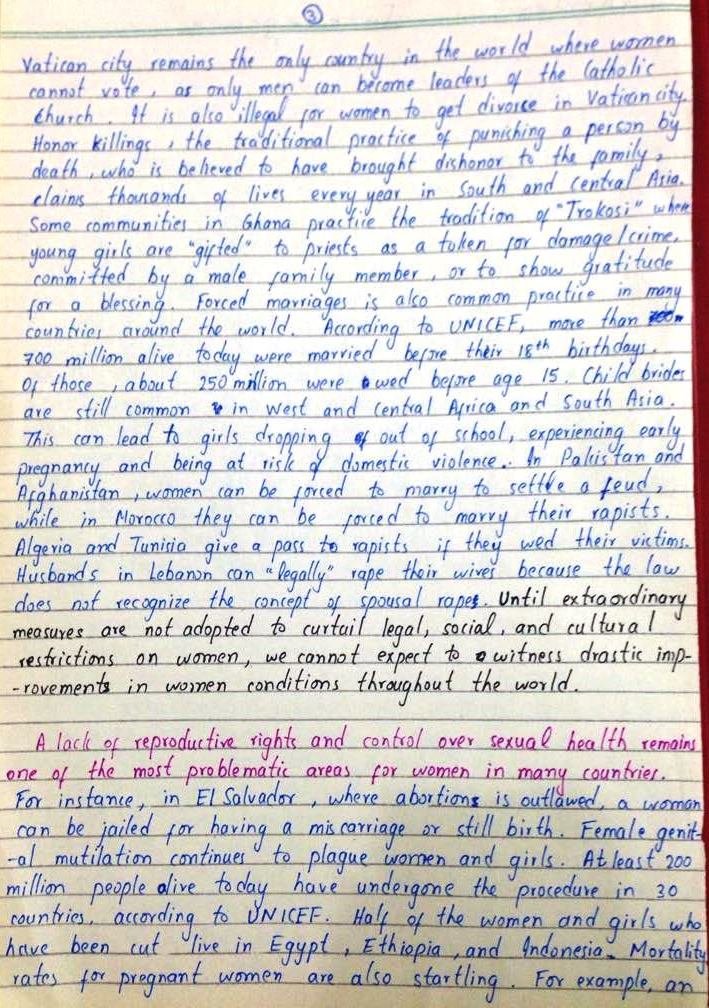 3
Vatican city remains the only country in the world where women
cannot vote, as only men can become leaders of the Catholic
church. It is also illegal for women to get divorse in Vatican city.
Honor killings, the traditional practice of punishing a person by
death, who is believed to have brought dishonor to the family,
claims thousands of lives every year in South and Central Asia.
Some communities in Ghana practice the tradition of "Trokosi" where
young girls are "gifted" to priests as a token for damage/crime,
committed by a male family member, or to show gratitude
for a blessing. Forced marriages is also common practice in many
countries around the world. According to UNICEF, more than
700 million alive today were married before their 18th birthdays.
Of those, about 250 million were wed before age 15. Child brides
are still common in West and Central Africa and South Asia.
This can lead to girls dropping out of school, experiencing early
pregnancy and being at risk of domestic violence. In Pakistan and
Afghanistan, women can be forced to marry to settle a feud,
while in Morocco they can be forced to marry their rapists.
Algeria and Tunisia give a pass to rapists if they wed their victims.
Husbands in Lebanon can "legally" rape their wives because the law
does not recognize the concept of spousal rape. Until extraordinary
measures are not adopted to curtail legal, social, and cultural
restrictions on women, we cannot expect to witness drastic imp-
-rovements in women conditions throughout the world.
A lack of reproductive rights and control over sexual health remains
one of the most problematic areas for women in many countries.
For instance, in El Salvador, where abortions is outlawed, a woman
can be jailed for having a miscarriage or still birth. Female genit-
-al mutilation continues to plague women and girls. At least 200
million people alive today have undergone the procedure in 30
countries, according to UNICEF. Half of the women and girls who
have been cut live in Egypt, Ethiopia, and Indonesia. Mortality
rates for pregnant women are also startling. For example, an